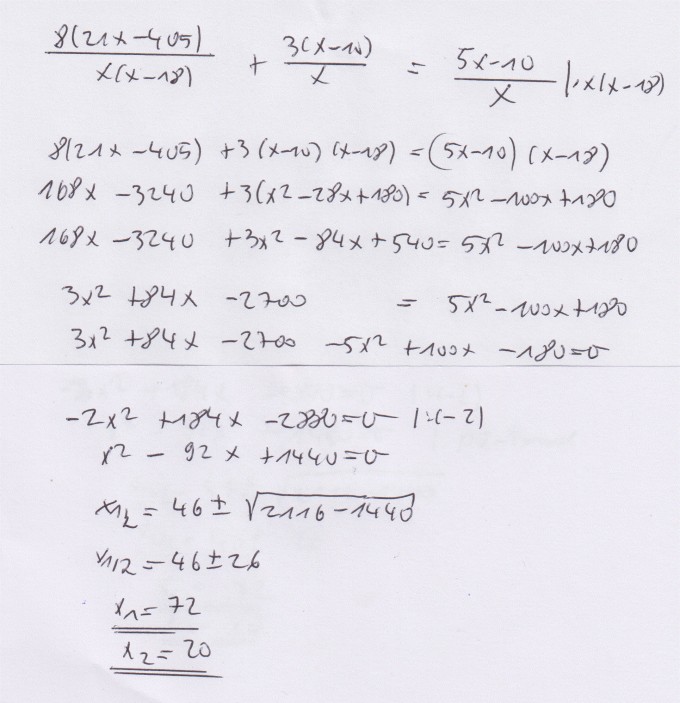 8(21x-405)/x(x-18) + 3(x-10)/x = 5x-10/x |·x(x-18)
8(21x-405) +3(x-10)(x-18) = (5x-10)(x-18)
168x -3240 +3(x²-28x+180) = 5x²-100x+180
168x -3240 +3x²-84x+540 = 5x²-100x+180
3x² +84x -2700 = 5x²-100x+180
3x² +84x -2700 -5x² +100x -180=0
-2x² +184x -2880=0 |:(-2)
x² - 92x +1440=0
x1/2 = 46 ± √2116-1440
x1/2 = 46 ± 26
x1 = 72
x2 = 20